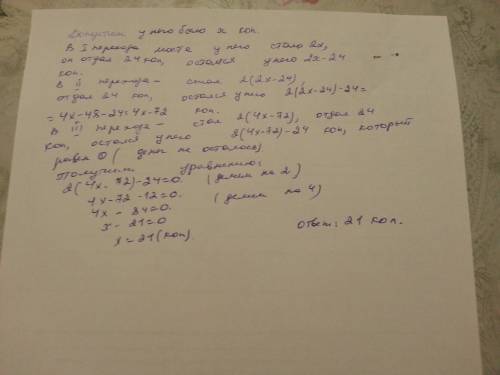 Допустим у него было x коп.
В I перехода моста у него стало 2x,
он отдал 24 коп, остался у него 2x-24
коп.
В II перехода - стал 2(2x-24),
отдал 24 коп, остался у него 2(2x-24)-24=
=4x-48-24=4x-72 коп.
В III перехода - стал 2(4x-72), отдал 24
коп, остался у него 2(4x-72)-24 коп, который
равен 0 (денег не осталось).
Получим уравнению:
2(4x-72)-24=0. (делим на 2)
4x-72-12=0.
4x-84=0. (делим на 4)
x-21=0
x=21(коп) ответ: 21 коп.